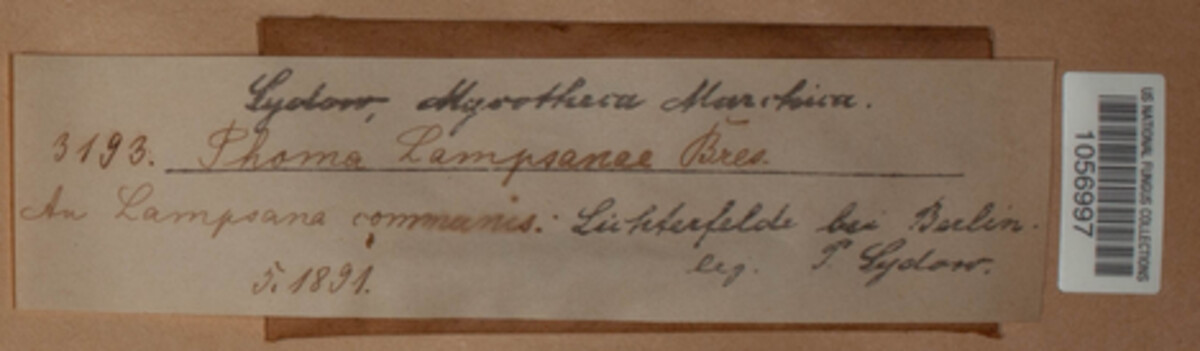 Sydow, Mycotheca Marchica.
3193. Phoma Lampsanae Bres.
An Lampsana communis. Lichterfelde bei Berlin.
5. 1891. leg. P. Sydow.
US NATIONAL FUNGUS COLLECTIONS
1056997